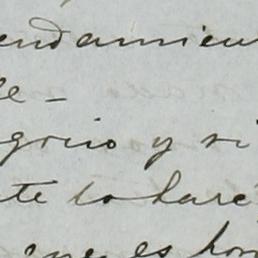 endamien
le -
grino y si
te lo haré
es hon